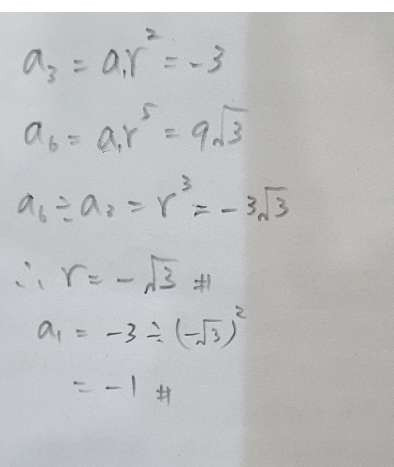 a₃ = a₁r² = -3
a₆ = a₁r⁵ = 9√3
a₆ ÷ a₃ = r³ = -3√3
∴ r = -√3 #
a₁ = -3 ÷ (-√3)²
= -1 #